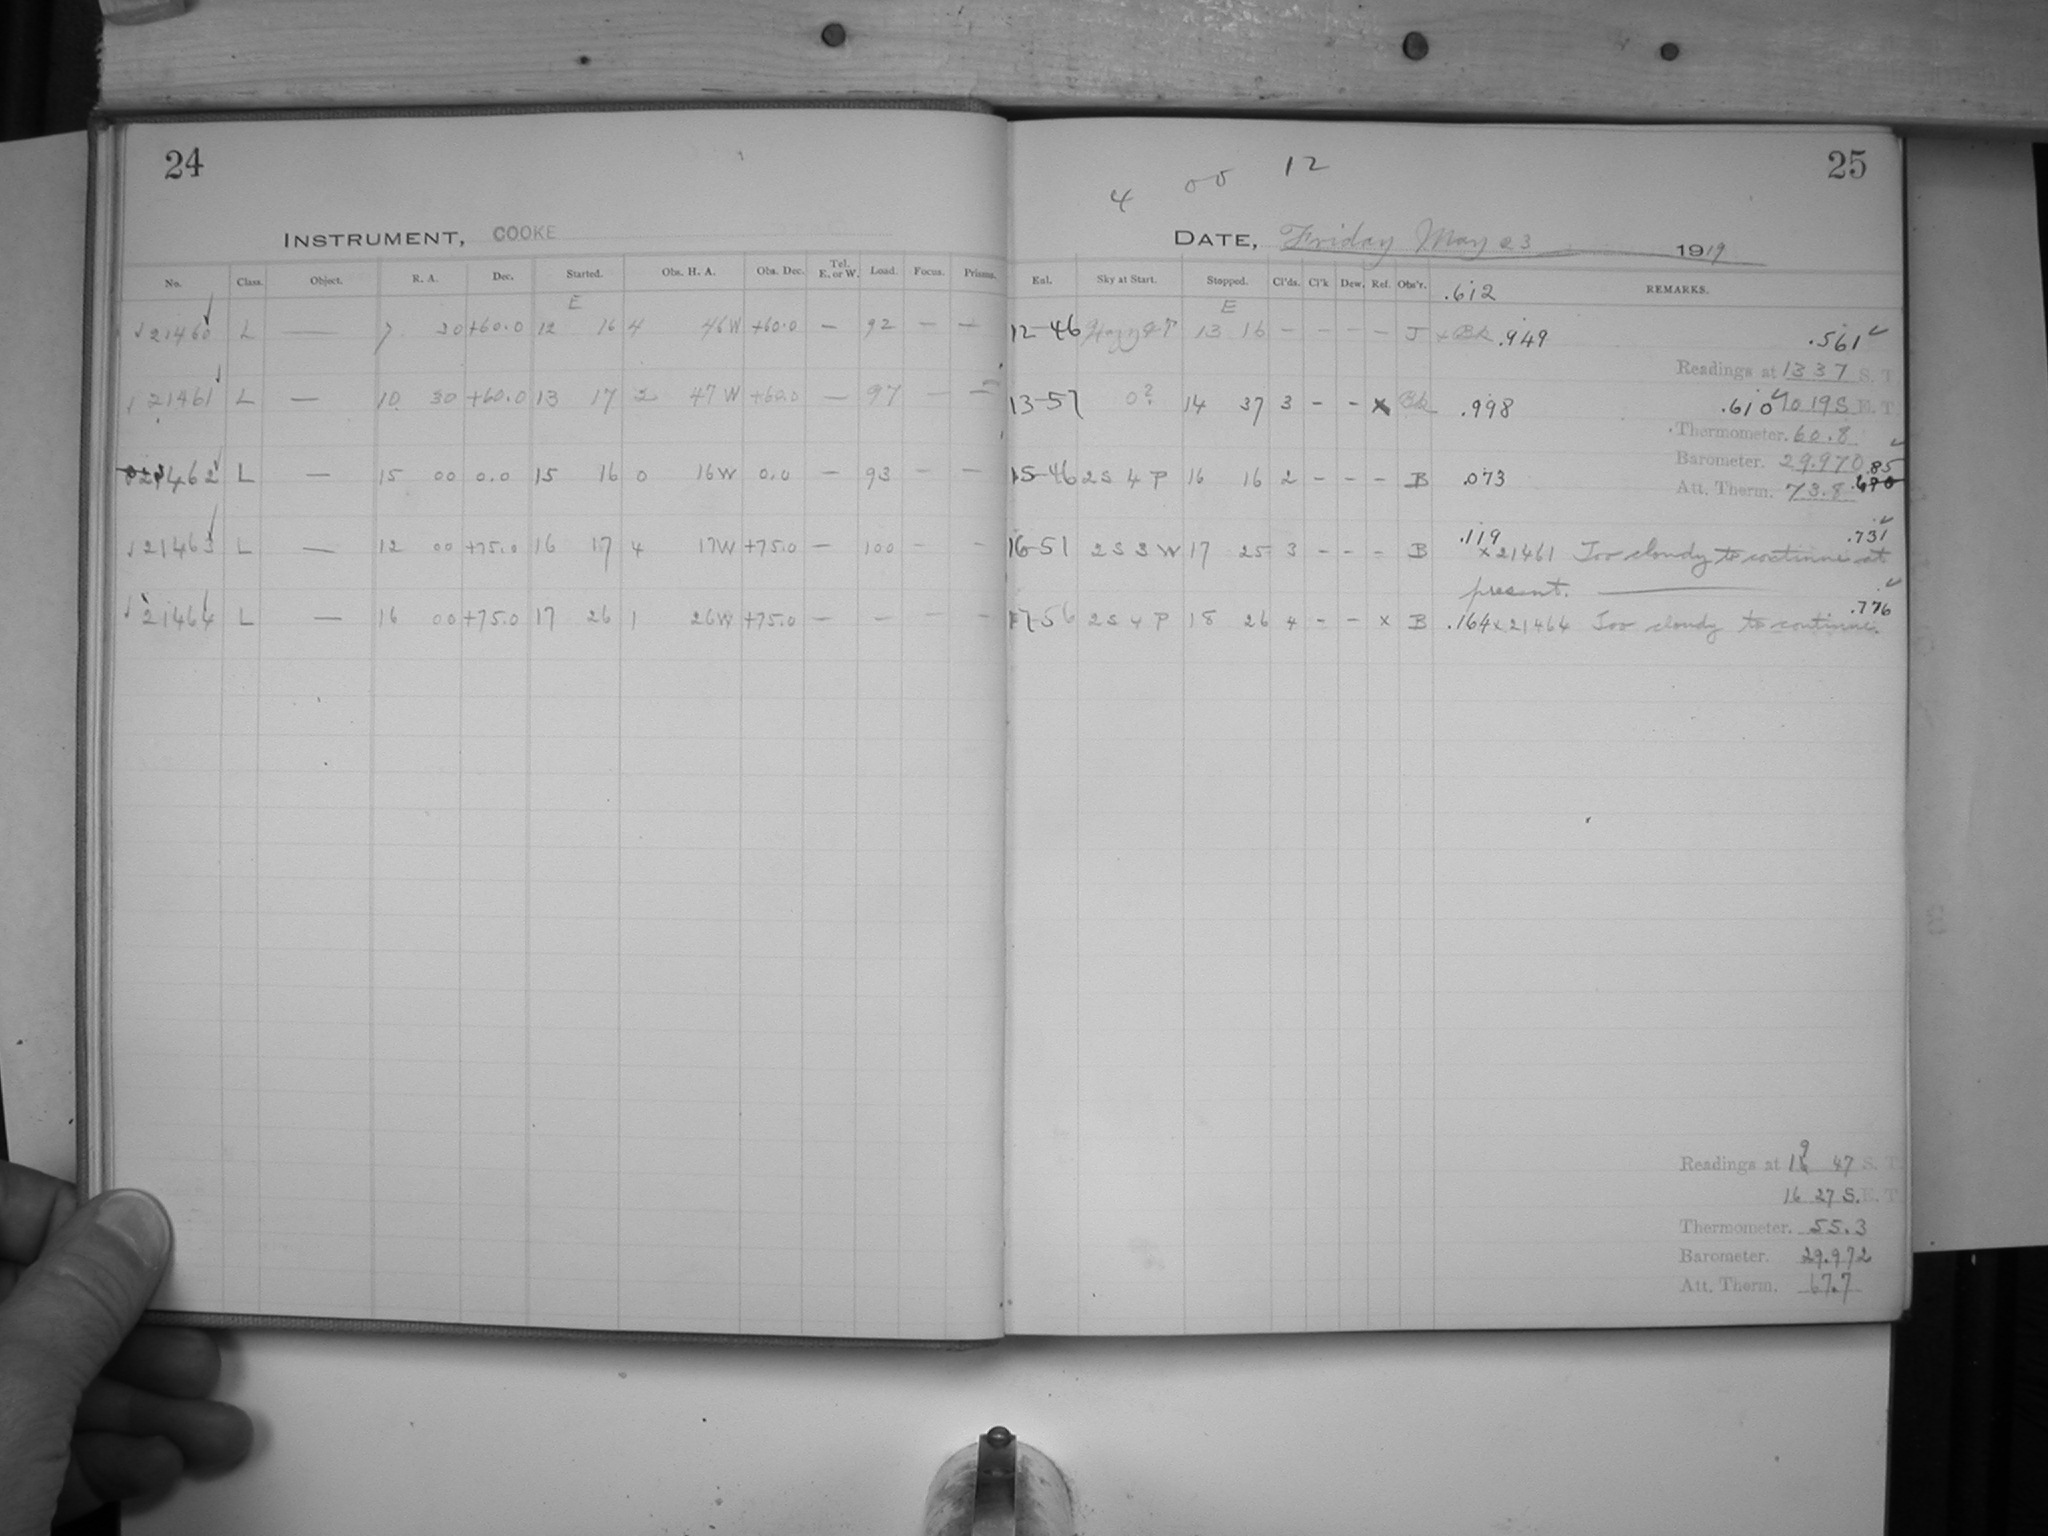 24
INSTRUMENT, COOKE
No. Class. Object. R. A. Dec. Started. Obs. H. A. Obs. Dec. Tel. E. or W. Load. Focus. Prisms.
E
21460 L — 7 30 +60.0 12 16 4 46W +60.0 — 92 — —
21461 L — 10 30 +60.0 13 17 2 47W +60.0 — 97 — —
21462 L — 15 00 0.0 15 16 0 16W 0.0 — 93 — —
21463 L — 12 00 +75.0 16 17 4 17W +75.0 — 100 — —
21464 L — 16 00 +75.0 17 26 1 26W +75.0 — — — —
4 00 12
25
DATE, Friday May 23 1919
Exl. Sky at Start. Stopped. Cl'ds. Cl'k Dew. Ref. Obs'r. .612 REMARKS.
E
12-46 13 16 — — — — J .949 .561
Readings at 13 37 S. T.
13-57 0? 14 37 3 - - x Bk .998 .610
10 19 S E. T.
Thermometer. 60.8
Barometer. 29.970
15-46 2S 4 P 16 16 2 - - - B .073 .85
Att. Therm. 73.8
16-51 2S 3 W 17 25 3 - - - B .119 .731
x 21461 Too cloudy to continue at
present. —
17-56 2S 4 P 18 26 4 - - x B .164 x 21464 Too cloudy to continue. .776
Readings at 19 47 S. T.
16 27 S. E. T.
Thermometer. 55.3
Barometer. 29.972
Att. Therm. 67.7